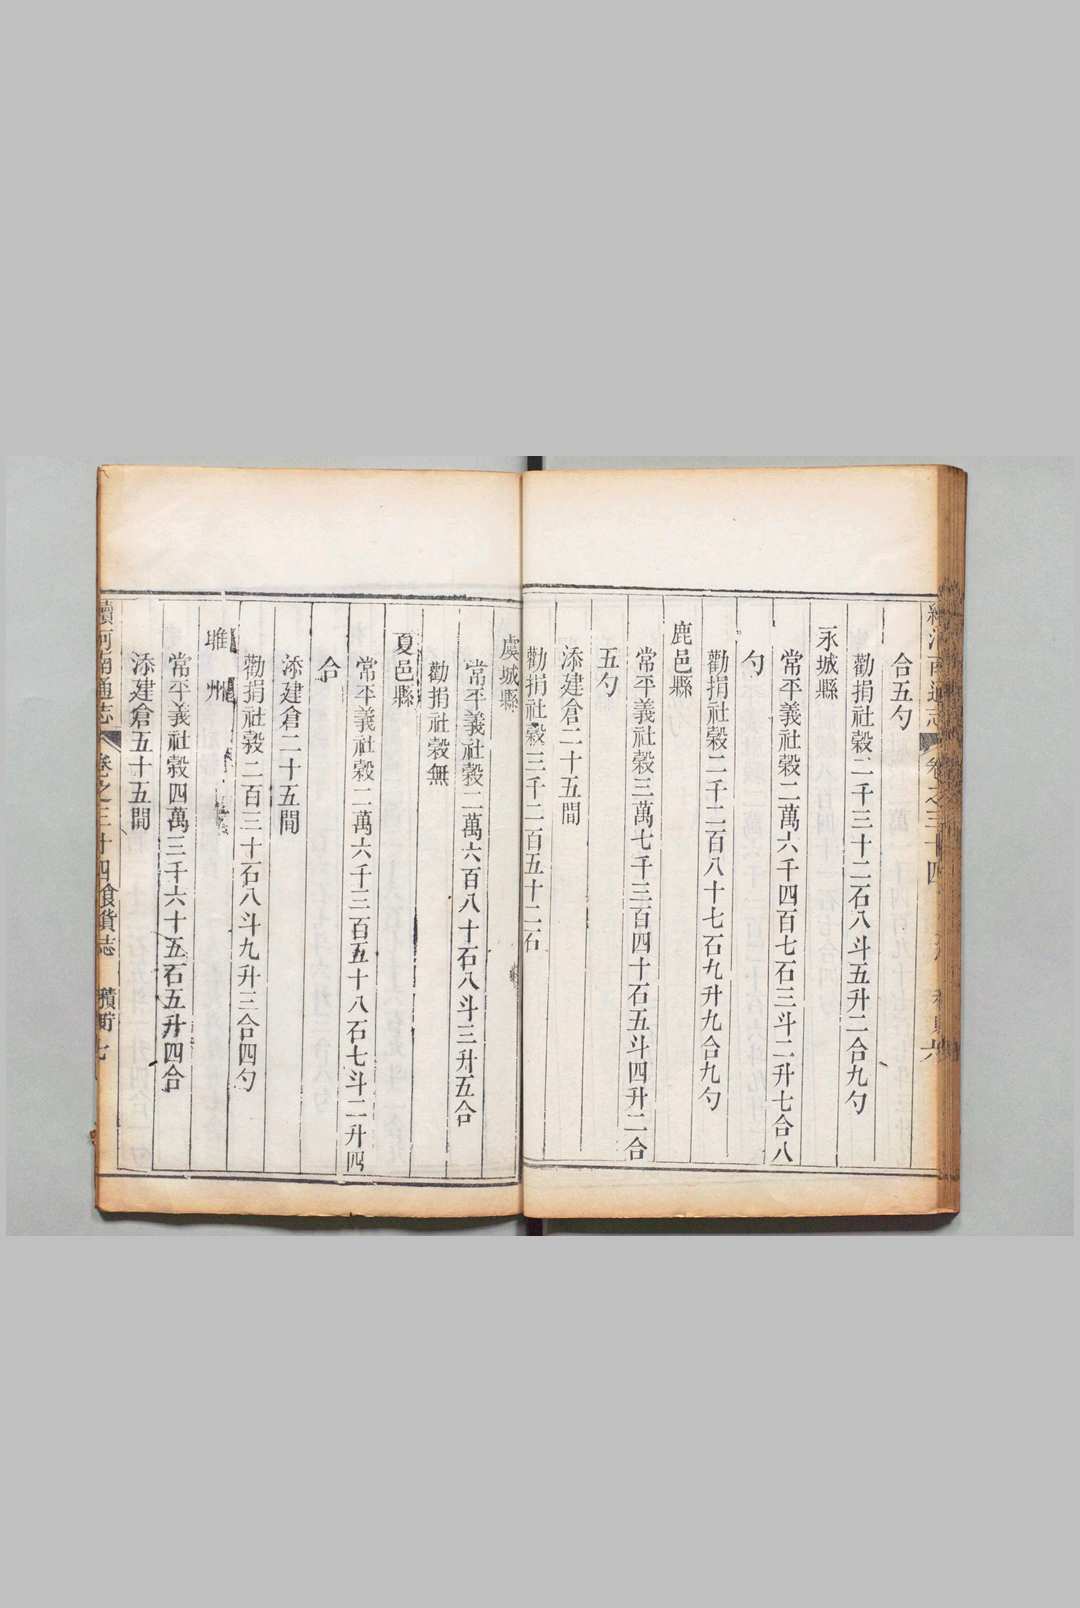 合五勺
勸捐社穀二千三十二石八斗五升二合九勺
永城縣
常平義社穀二萬六千四百七石三斗二升七合八
勺
勸捐社穀二千二百八十七石九升九合九勺
鹿邑縣
常平義社穀三萬七千三百四十石五斗四升二合
五勺
添建倉二十五間
勸捐社穀三千二百五十二石
虞城縣
常平義社穀二萬六百八十石八斗三升五合
勸捐社穀無
夏邑縣
常平義社穀二萬六千三百五十八石七斗二升四
合
添建倉二十五間
勸捐社穀二百三十石八斗九升三合四勺
睢州
常平義社穀四萬三千六十五石五升四合
添建倉五十五間
續河南通志 卷之三十四食貨志 積貯 七